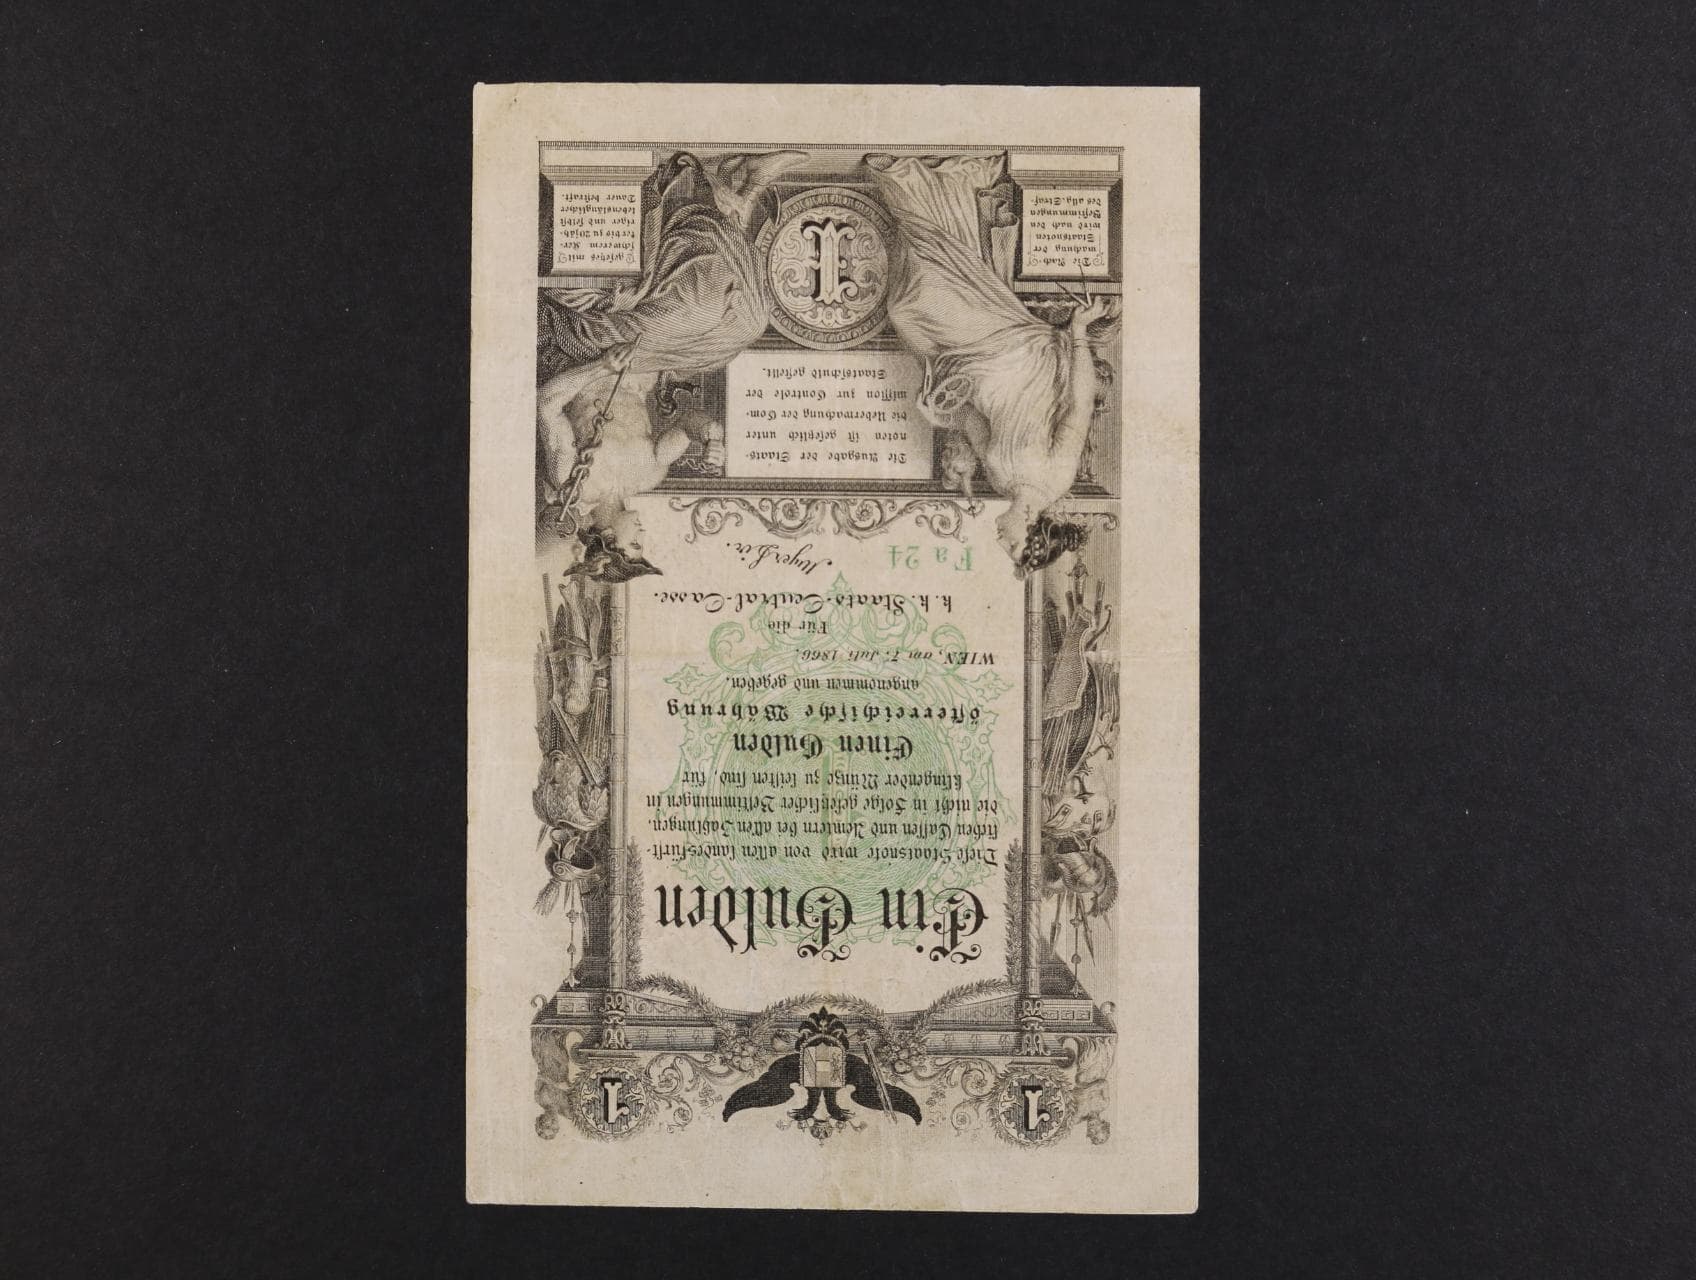 1
1
Ein Gulden
Diese Staatsnote wird von allen landesfürst-
lichen Cassen und Aemtern bei allen Zahlungen,
die nicht in Folge gesetzlicher Bestimmungen in
klingender Münze zu leisten sind, für
Einen Gulden
österreichische Währung
angenommen und gegeben.
WIEN, am 7. Juli 1866.
Für die
k. k. Staats-Central-Casse.
Fa 24
Die Ausgabe der Staats-
noten ist gesetzlich unter
die Ueberwachung der Com-
mission zur Controle der
Staatsschuld gestellt.
1
Die Nach-
machung der
Staatsnoten
wird nach den
Bestimmungen
des allg. Straf-
gesetzes mit
schwerem Ker-
ker bis zu 20jäh-
riger und selbst
lebenslänglicher
Dauer bestraft.